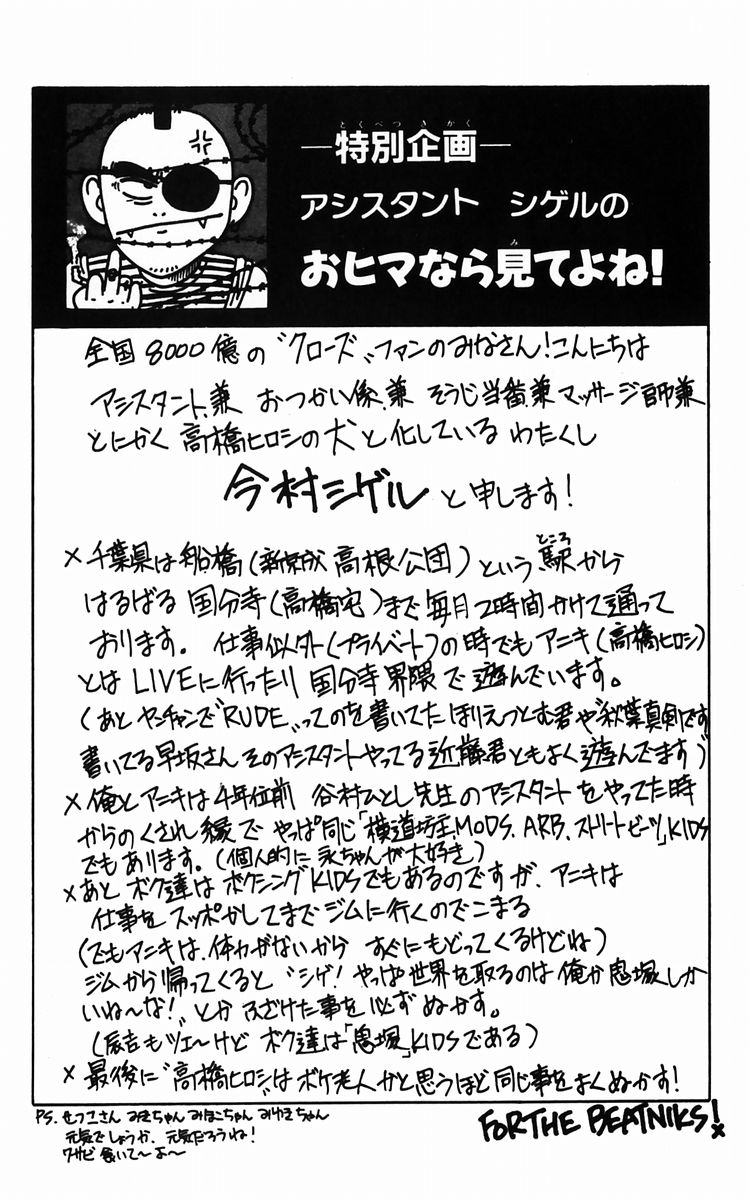 ―特別企画―
とくべつきかく
アシスタント シゲルの
おヒマなら見てよね!
み
全国8000億の〝クローズ〟ファンのみなさん!こんにちは
アシスタント.兼 おつかい係.兼 そうじ当番.兼マッサージ師兼
とにかく 高橋ヒロシの犬と化している わたくし
今村シゲル と申します!
×千葉県は船橋(新京成 高根公団)という駅から
ところ
はるばる 国分寺(高橋宅)まで毎月2時間かけて通って
おります。 仕事以外(プライベート)の時でもアニキ(高橋ヒロシ)
とは LIVEに行ったり 国分寺界隈で遊んでいます。
(あとヤンチャンで〝RUDE〟ってのを書いてたほりえつとむ君や〝秋葉真剣です〟
書いてる早坂さんそのアシスタントやってる近藤君ともよく遊んでます)
×俺とアニキは4年位前 谷村ひとし先生のアシスタントをやってた時
からのくされ縁で やっぱ同じ「横道坊主.MODS.ARB.ストリートビーツ」KIDS
でもあります。(個人的に永ちゃんが大好き)
×あと ボク達はボクシングKIDSでもあるのですが、アニキは
仕事をスッポかしてまでジムに行くのでこまる
(でもアニキは.体力がないから すぐにもどってくるけどね)
ジムから帰ってくると〝シゲ!やっぱ世界を取るのは俺か鬼塚しか
いね〜な!〟とかふざけた事を必ずぬかす。
(辰吉もツエ〜けど ボク達は「鬼塚」KIDSである)
×最後に〝高橋ヒロシ〟はボケ老人かと思うほど同じ事をよくぬかす!
PS.せつこさん みきちゃん みほこちゃん みゆきちゃん
元気でしょうか.元気だろうね!
ワサビ食いて〜よ〜
FOR THE BEATNIKS!